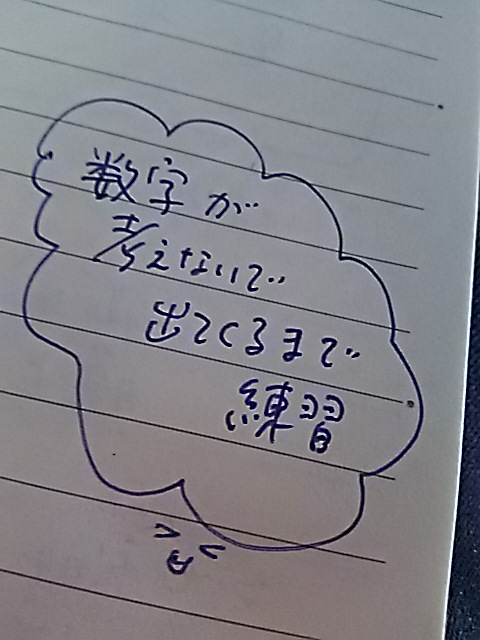 数字が
考えないで
出てくるまで
練習